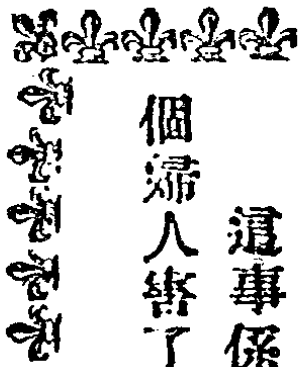 這事係
個婦人害了